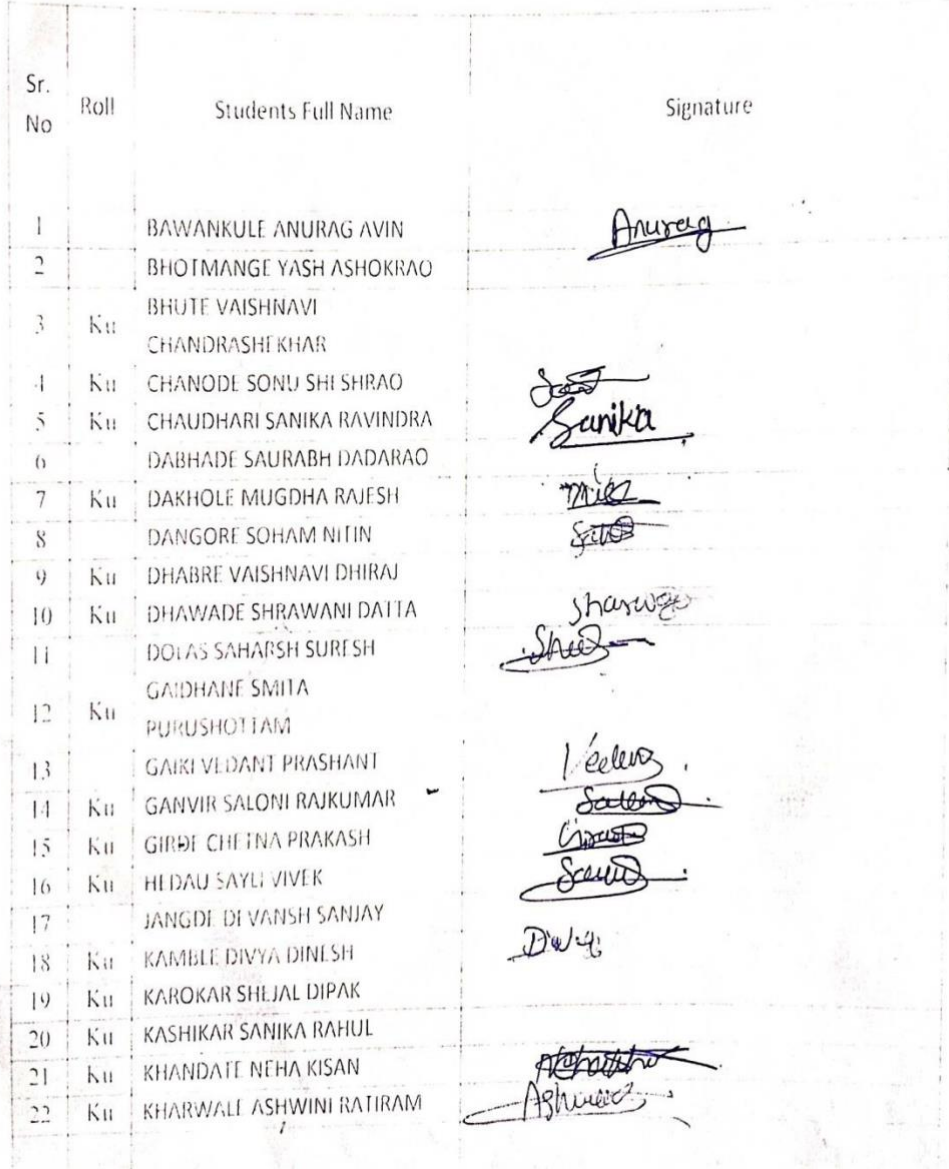 Sr. No Roll Students Full Name Signature
1 BAWANKULE ANURAG AVIN Anurag
2 BHOTMANGE YASH ASHOKRAO
3 Ku BHUTE VAISHNAVI
CHANDRASHEKHAR
4 Ku CHANODE SONU SHESHRAO
5 Ku CHAUDHARI SANIKA RAVINDRA Sanika
6 DABHADE SAURABH DADARAO
7 Ku DAKHOLE MUGDHA RAJESH
8 DANGORE SOHAM NITIN
9 Ku DHABRE VAISHNAVI DHIRAJ
10 Ku DHAWADE SHRAWANI DATTA
11 DOLAS SAHARSH SURESH
12 Ku GAIDHANE SMITA
PURUSHOTTAM
13 GAIKI VEDANT PRASHANT
14 Ku GANVIR SALONI RAJKUMAR
15 Ku GIRDE CHETNA PRAKASH
16 Ku HEDAU SAYLI VIVEK
17 JANGDE DEVANSH SANJAY
18 Ku KAMBLE DIVYA DINESH
19 Ku KAROKAR SHEJAL DIPAK
20 Ku KASHIKAR SANIKA RAHUL
21 Ku KHANDATE NEHA KISAN
22 Ku KHARWALE ASHWINI RATIRAM